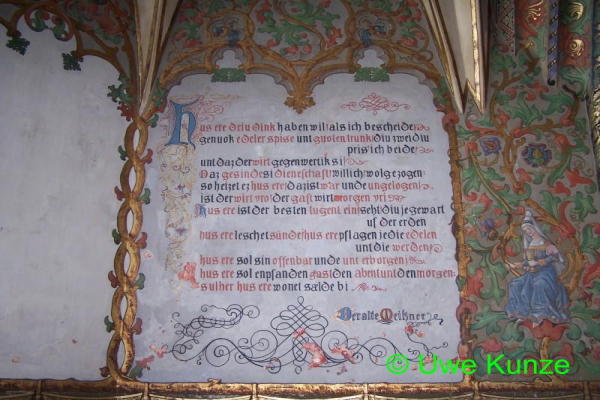 hus ere driu dink haben wil: als ich bescheide:
genuok edeler spise unt guoten trunk: diu zwei diu
pris ich beide:
unt daz der wirt gegenwertik si
Daz gesinde si dienesthaft willich wol gezogen:
so heizet ez hus ere: daz ist war unde ungelogen:
ist der wirt vro: der gast wirt morgen vri:
hus ere ist der besten tugent ein: seht: diu je gewart
uf der erden
hus ere leschet sünde: hus ere pflagen je die edelen
unt die werden:
hus ere sol sin offenbar unde unt verborgen:
hus ere sol enpfanden gast den abent unt den morgen:
swelher hus ere wonet sælde bi
Der alte Meihner
© Uwe Kunze